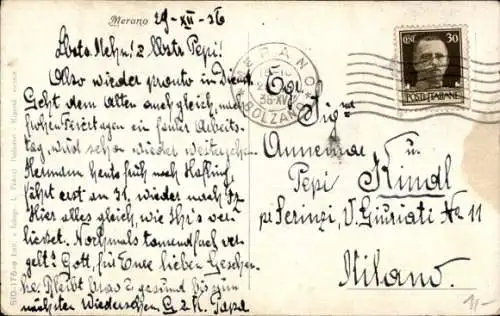 Merano 29-XII-36
Lbste Nehn! & Lbste Pepi!
Also wieder pronto in Dienst
Geht dem Alten auch gleich, nach
frohen Feiertagen ein fauler Arbeits-
tag wird schon wieder weitergehen.
Hermann heute früh nach Hafling,
fährt erst am 31, wieder nach
Hier alles gleich, wie Ihr's ver-
liesset. Nochmals tausendfach ver-
gelts Gott, für Eure lieben Geschen-
ke. Bleibt brav & gesund bis zum
nächsten Wiedersehen. G & K Papa
MERANO
BOLZANO
30
POSTE ITALIANE
Egr. Sigra
Annemarie u.
Pepi Kindl
V. Giuriati No 11
Milano.